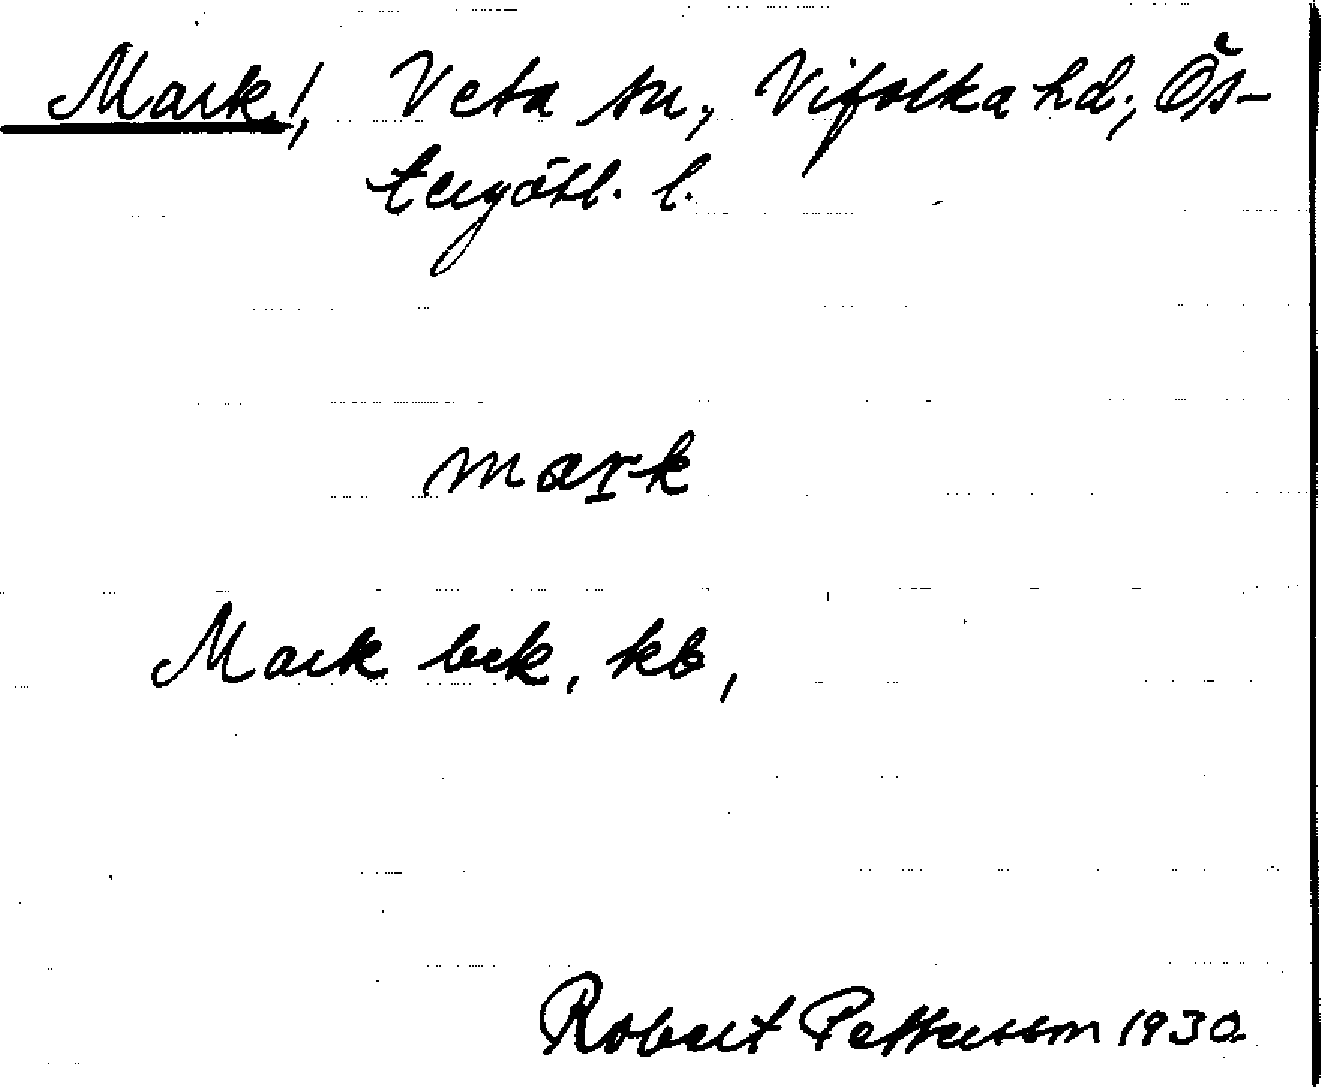 Mark!, Veta sn, Vifolka hd, Ös-
tergötl. l.
mark
Mark bek, kb,
Robert Pettersson 1930